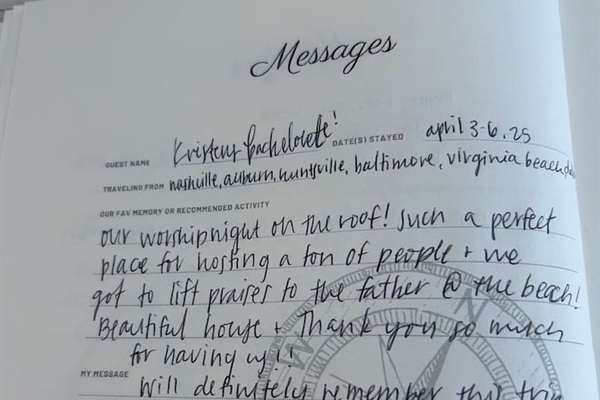 Messages
GUEST NAME Kristen's Bachelorette!
DATE(S) STAYED april 3-6, 25
TRAVELING FROM nashville, auburn, huntsville, baltimore, virginia beach,
OUR FAV MEMORY OR RECOMMENDED ACTIVITY
our worship night on the roof! Such a perfect
place for hosting a ton of people + we
got to lift praises to the father @ the beach!
Beautiful house + Thank you so much
for having us!!
MY MESSAGE
will definitely remember this trip
W
N